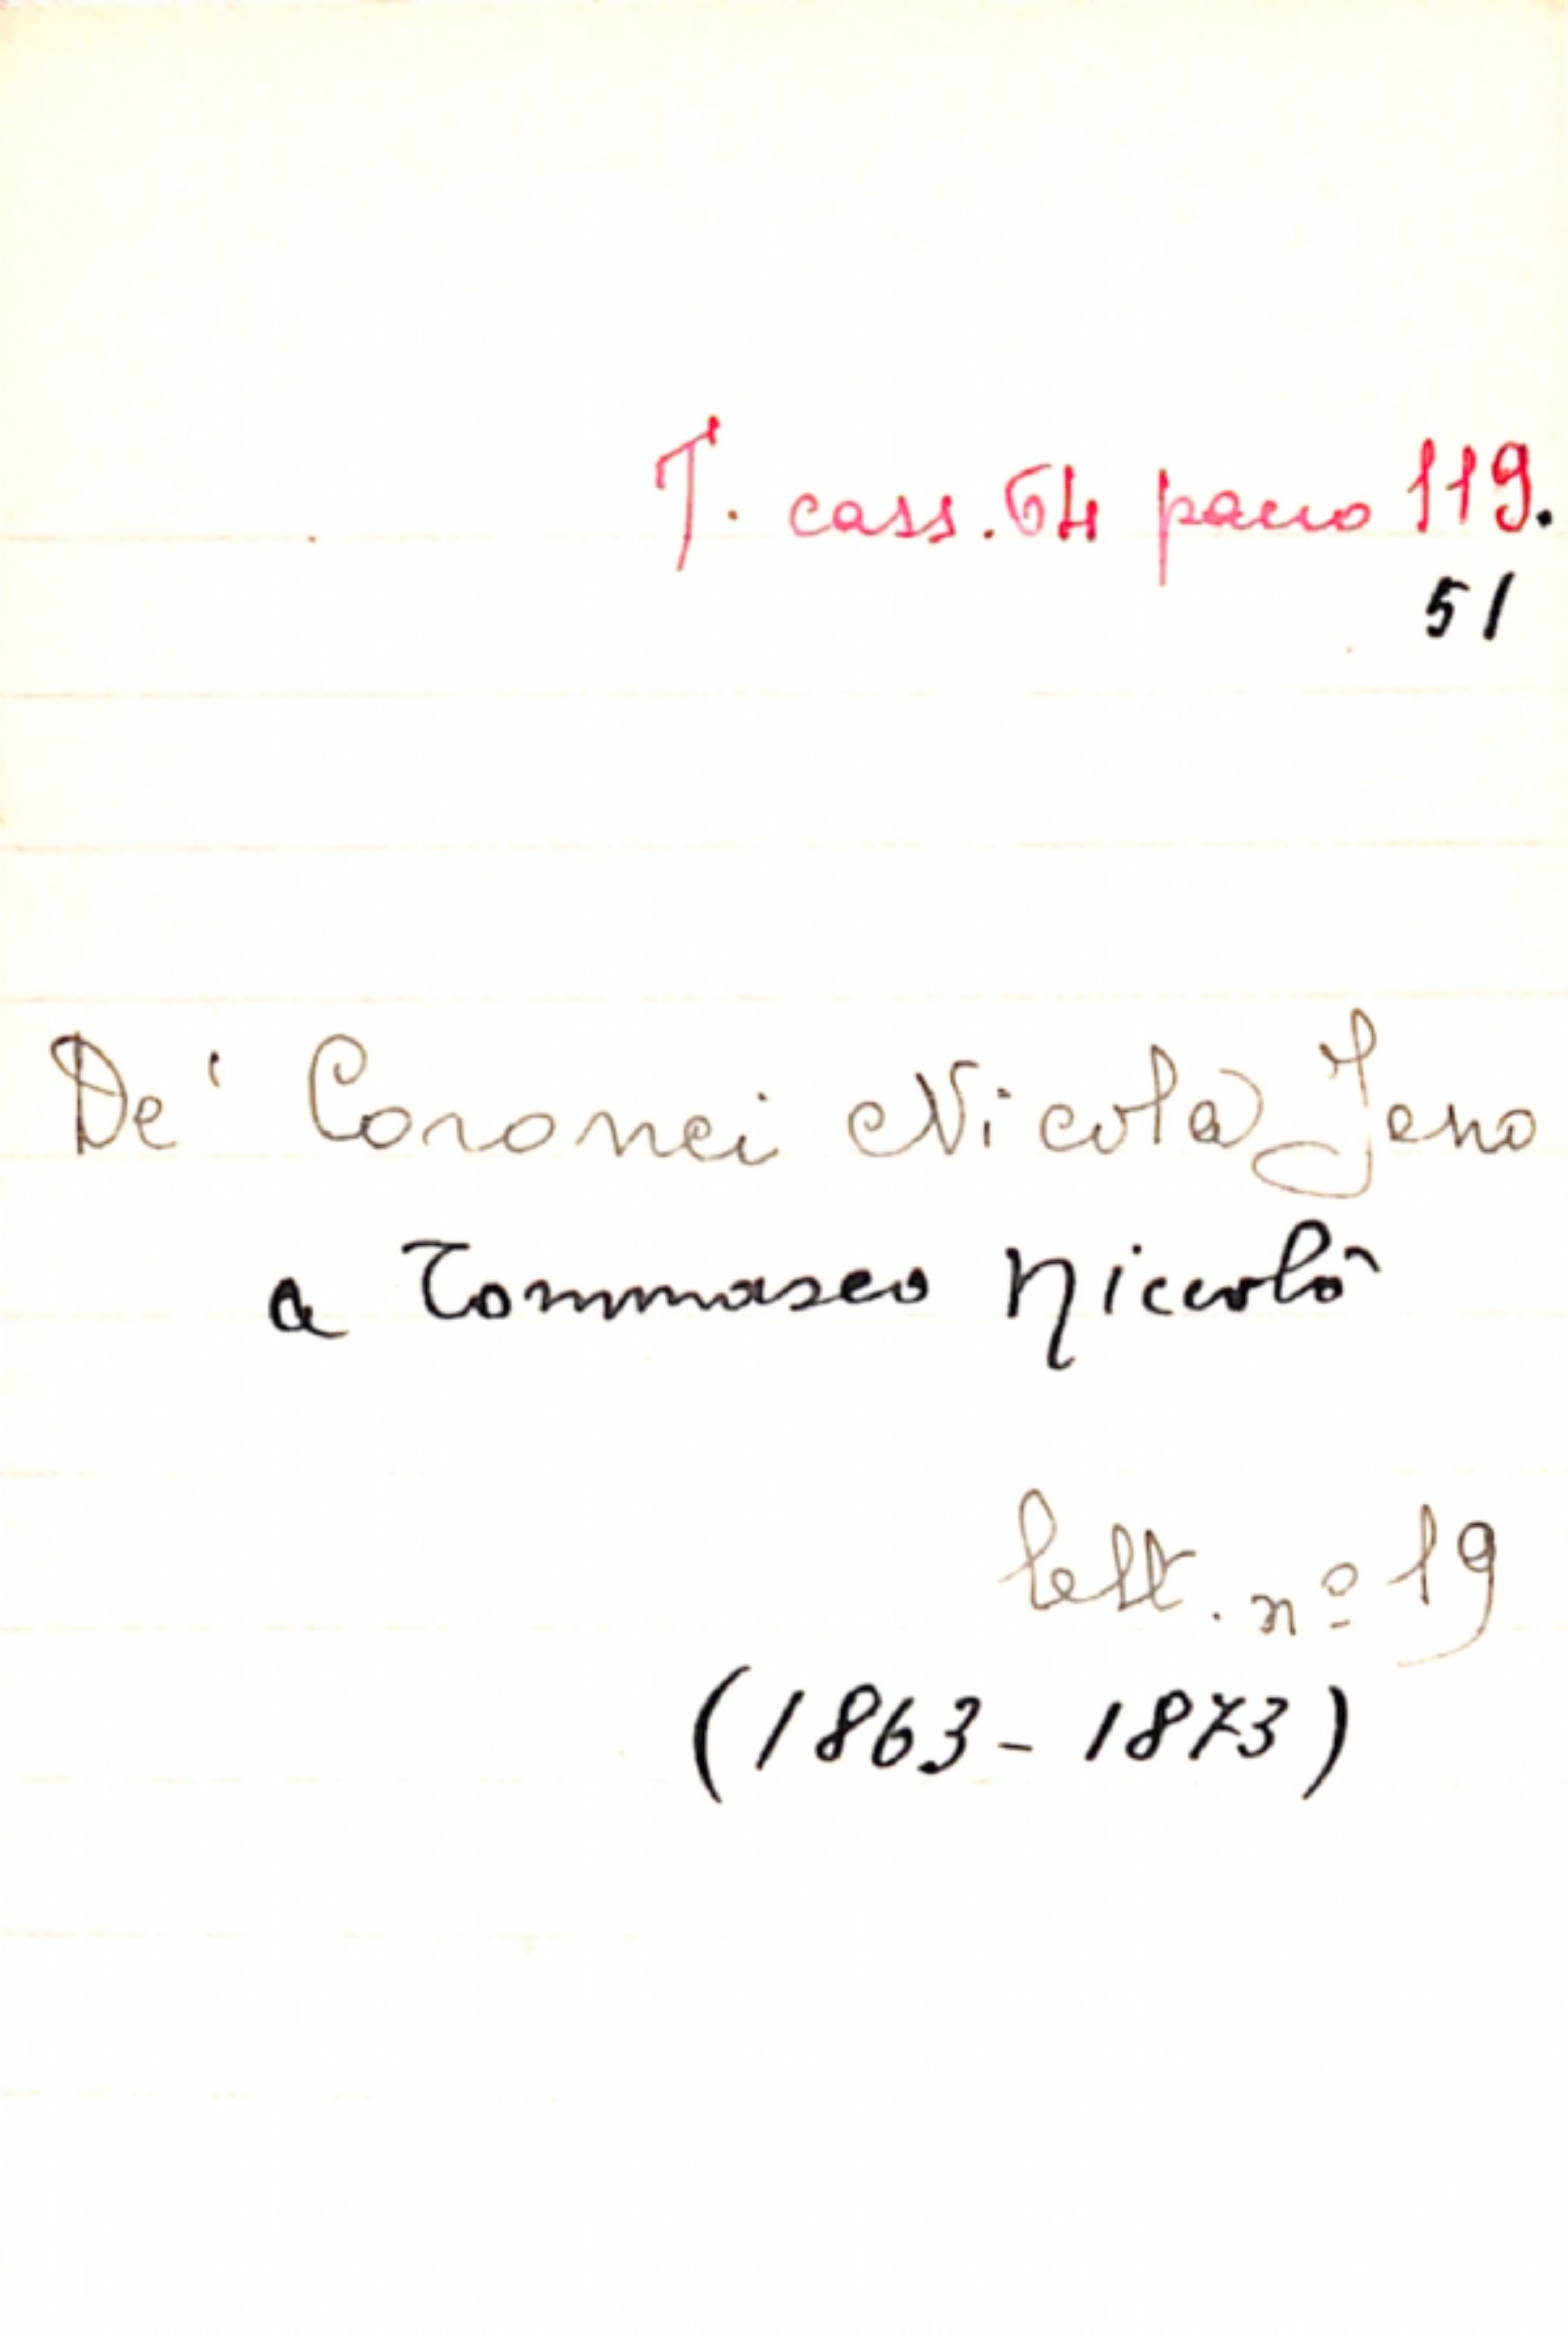 T. cass. 64 pacco 119.
51
De' Coronei Nicola Jeno
a Tommaseo Niccolò
lett. nº 19
(1863-1873)